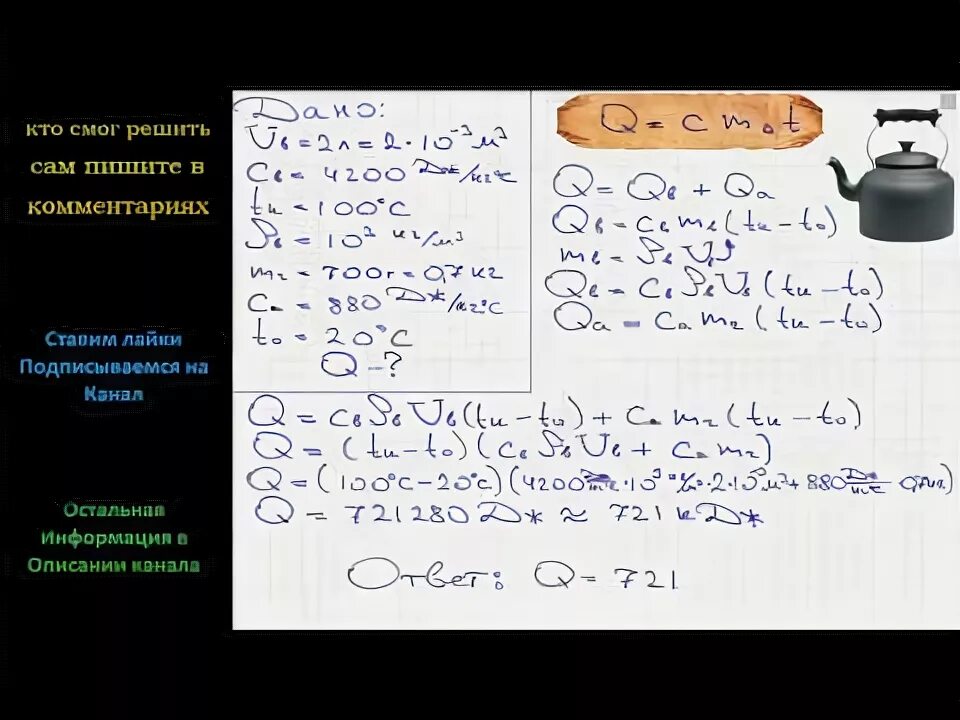 кто смог решить
сам пишите в
комментариях
Ставим лайки
Подписываемся на
Канал
Остальная
Информация в
Описании канала
Дано:
Uв = 2л = 2·10⁻³ м³
Cв = 4200 Дж/кг°С
tк = 100°С
ρв = 10³ кг/м³
m₂ = 700г = 0,7кг
Cа = 880 Дж/кг°С
t₀ = 20°С
Q - ?
Q = c m ₀ t
Q = Qв + Qа
Qв = cв mв (tк – t₀)
mв = ρв Uв
Qв = Cв ρв Uв (tк – t₀)
Qа = Cа m₂ (tк – t₀)
Q = Cв ρв Uв (tк – t₀) + Cа m₂ (tк – t₀)
Q = (tк – t₀) (Cв ρв Uв + Cа m₂)
Q = (100°С – 20°С) (4200 ·10³ ·2·10⁻³ м³ + 880 Дж/кг°С 0,7кг)
Q = 721280 Дж ≈ 721 кДж
Ответ: Q = 721